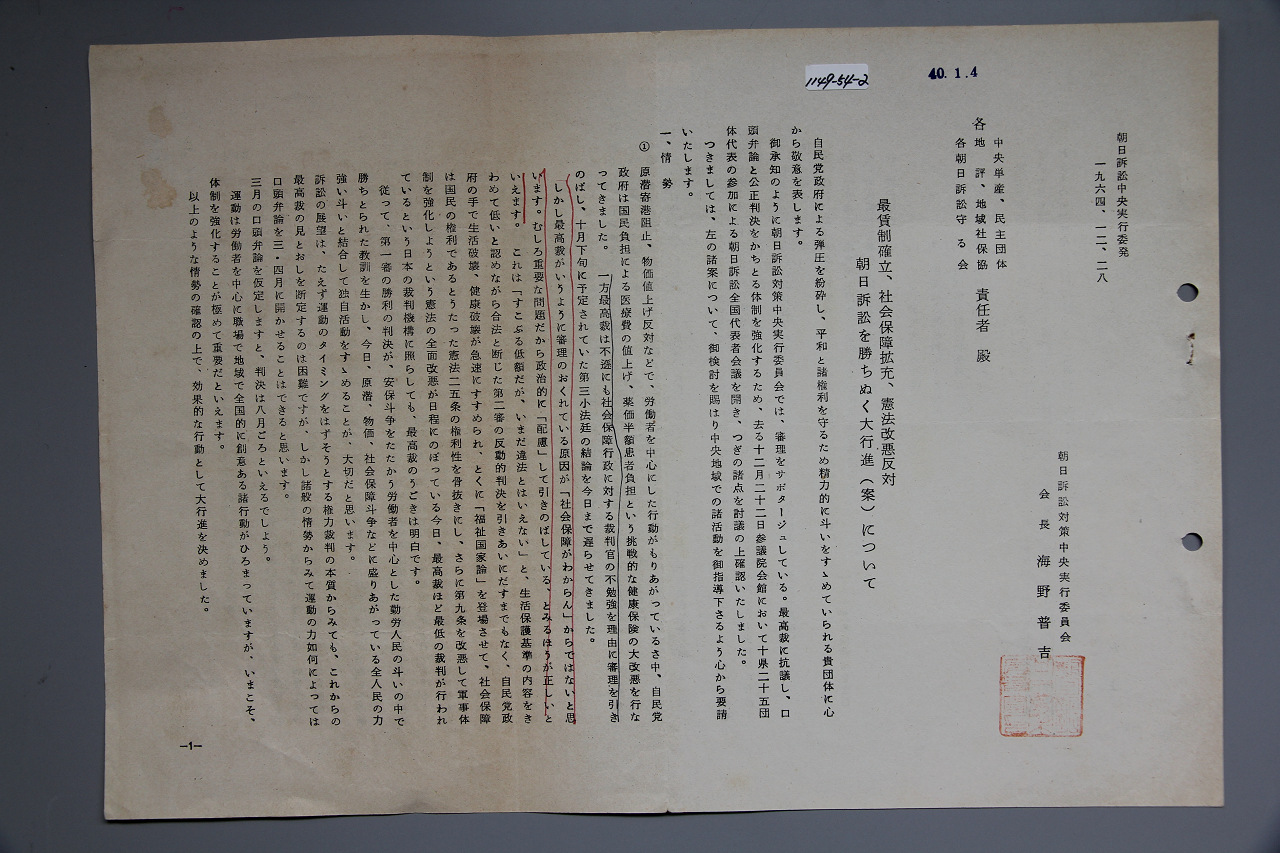 1149-54-2
40.1.4
朝日訴訟中央実行委発
一九六四、一二、二八
朝日訴訟対策中央実行委員会
会長 海野普吉
中央単産、民主団体
各地評、地域社保協 責任者 殿
各朝日訴訟守る会
最賃制確立、社会保障拡充、憲法改悪反対
朝日訴訟を勝ちぬく大行進（案）について
自民党政府による弾圧を紛砕し、平和と諸権利を守るため精力的に斗いをすゝめていられる貴団体に心
から敬意を表します。
御承知のように朝日訴訟対策中央実行委員会では、審理をサボタージュしている。最高裁に抗議し、口
頭弁論と公正判決をかちとる体制を強化するため、去る十二月二十二日参議院会館において十県二十五団
体代表の参加による朝日訴訟全国代表者会議を開き、つぎの諸点を討議の上確認いたしました。
つきましては、左の諸案について、御検討を賜はり中央地域での諸活動を御指導下さるよう心から要請
いたします。
一、情 勢
① 原潜寄港阻止、物価値上げ反対などで、労働者を中心にした行動がもりあがっているさ中、自民党
政府は国民負担による医療費の値上げ、薬価半額患者負担という挑戦的な健康保険の大改悪を行な
ってきました。一方最高裁は不遜にも社会保障行政に対する裁判官の不勉強を理由に審理を引き
のばし、十月下旬に予定されていた第三小法廷の結論を今日まで遅らせてきました。
しかし最高裁がいうように審理のおくれている原因が「社会保障がわからん」からではないと思
います。むしろ重要な問題だから政治的に「配慮」して引きのばしている、とみるほうが正しいと
いえます。 これは「すこぶる低額だが、いまだ違法とはいえない」と、生活保護基準の内容をき
わめて低いと認めながら合法と断じた第二審の反動的判決を引きあいにだすまでもなく、自民党政
府の手で生活破壊、健康破壊が急速にすすめられ、とくに「福祉国家論」を登場させて、社会保障
は国民の権利であるとうたった憲法二五条の権利性を骨抜きにし、さらに第九条を改悪して軍事体
制を強化しようという憲法の全面改悪が日程にのぼっている今日、最高裁ほど最低の裁判が行われ
ているという日本の裁判機構に照らしても、最高裁のうごきは明白です。
従って、第一審の勝利の判決が、安保斗争をたたかう労働者を中心とした勤労人民の斗いの中で
勝ちとられた教訓を生かし、今日、原潜、物価、社会保障斗争などに盛りあがっている全人民の力
強い斗いと結合して独自活動をすゝめることが、大切だと思います。
訴訟の展望は、たえず運動のタイミングをはずそうとする権力裁判の本質からみても、これからの
最高裁の見とおしを断定するのは困難ですが、しかし諸般の情勢からみて運動の力如何によっては
口頭弁論を三・四月に開かせることはできると思います。
三月の口頭弁論を仮定しますと、判決は八月ごろといえるでしよう。
運動は労働者を中心に職場で地域で全国的に創意ある諸行動がひろまっていますが、いまこそ、
体制を強化することが極めて重要だといえます。
以上のような情勢の確認の上で、効果的な行動として大行進を決めました。
—1—